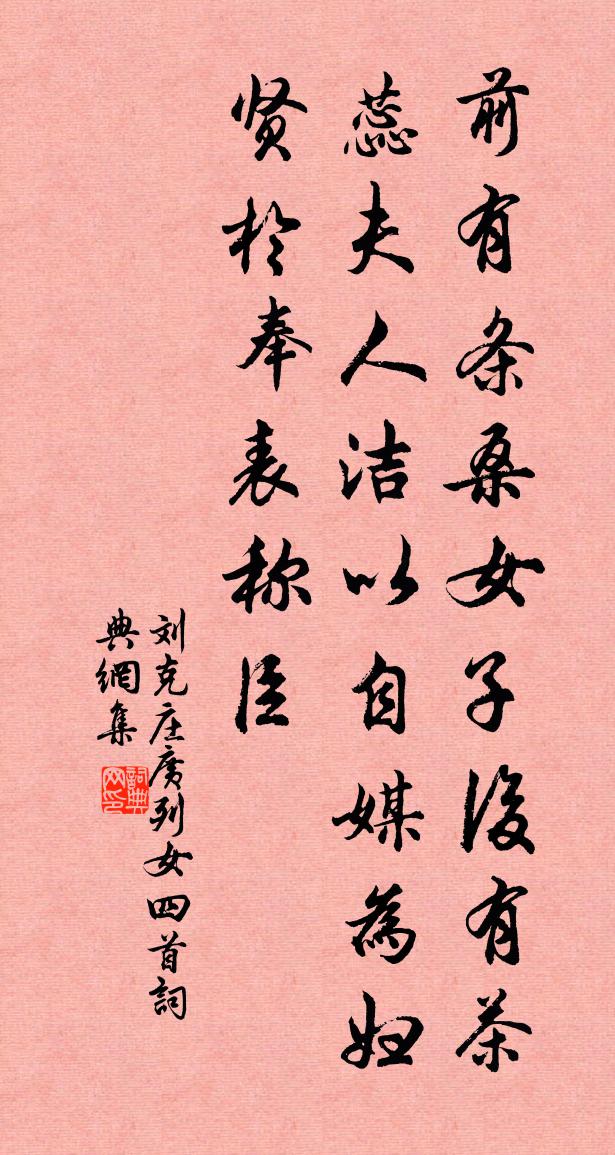 前有条桑女子後有茶
蕊夫人洁以自媒為妇
贤於奉表称臣
刘克庄廣列女四首詞
典網集
詞典网印